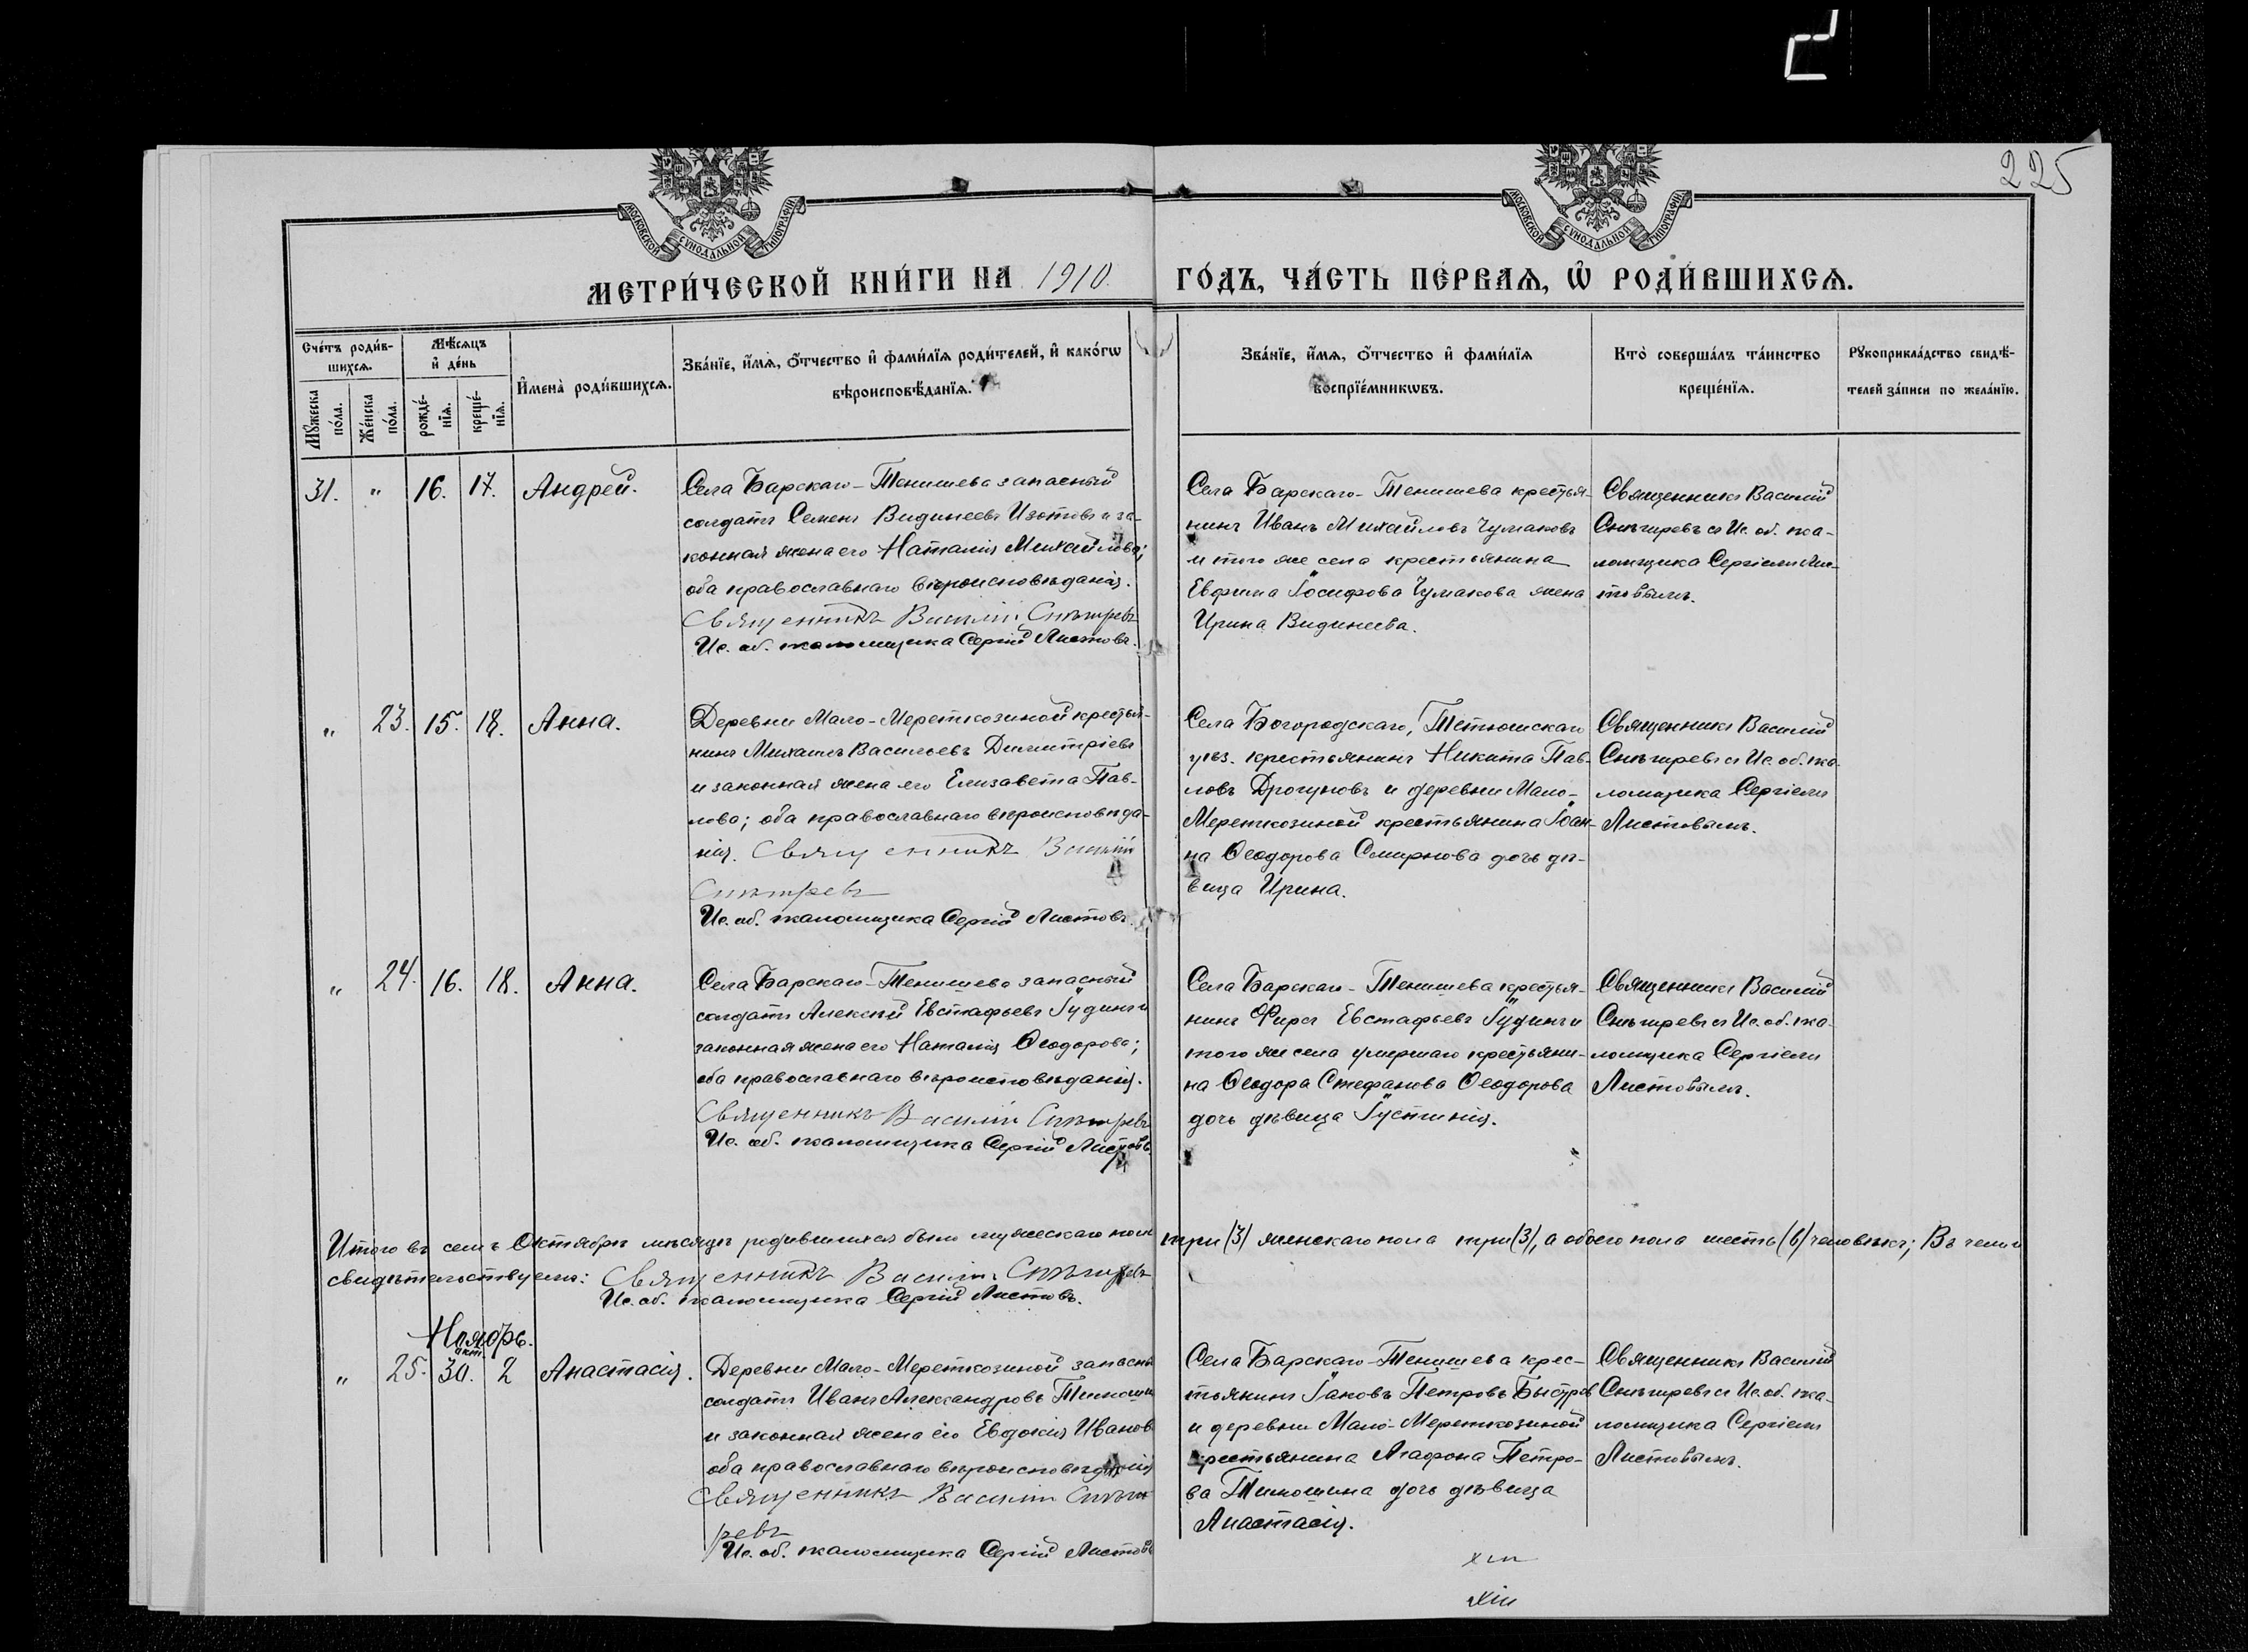 225
МОСКОВСКОЙ СУНОДАЛЬНОЙ ТИПОГРАФІИ
МОСКОВСКОЙ СУНОДАЛЬНОЙ ТИПОГРАФІИ
МЕТРИ́ЧЕСКОЙ КНИ́ГИ НА 1910. ГО́ДЪ, ЧА́СТЬ ПЕ́РВАѦ, Ѡ҆ РОДИ́ВШИХСѦ.
Сче́тъ роди́в-
шихсѧ.
Мꙋ́жеска
по́ла.
Же́нска
по́ла.
Мѣ́сѧцъ
и҆ де́нь
рожде́-
нїѧ.
креще́-
нїѧ.
И҆мена̀ роди́вшихсѧ.
Зва́нїе, и҆́мѧ, ѻ҆́тчество и҆ фами́лїѧ роди́телей, и҆ како́гѡ
вѣроисповѣ́данїѧ.
Зва́нїе, и҆́мѧ, ѻ҆́тчество и҆ фами́лїѧ
воспрїе́мникѡвъ.
Кто̀ соверша́лъ та́инство
креще́нїѧ.
Рꙋкоприкла́дство свидѣ́-
телей за́писи по жела́нїю.
31. " 16. 17. Андрей.
Села Барскаго-Тенишева запасный
солдатъ Семенъ Видинеевъ Изотовъ и за-
конная жена его Наталія Михайлова;
оба православнаго вѣроисповѣданія.
Священникъ Василій Снѣгиревъ
Ис. об. псаломщика Сергій Листовъ.
Села Барскаго-Тенишева крестья-
нинъ Иванъ Михайловъ Чумаковъ
и того же села крестьянина
Евфима Іосифова Чумакова жена
Ирина Видинеева.
Священникъ Василій
Снѣгиревъ съ Ис. об. пса-
ломщика Сергіемъ Лис-
товымъ.
" 23. 15. 18. Анна.
Деревни Мало-Мереткозиной крестья-
нинъ Михаилъ Васильевъ Димитріевъ
и законная жена его Елизавета Пав-
лова; оба православнаго вѣроисповѣда-
нія. Священникъ Василій
Снѣгиревъ
Ис. об. псаломщика Сергій Листовъ.
Села Богородскаго, Тетюшскаго
уѣз. крестьянинъ Никита Пав-
ловъ Драгуновъ и деревни Мало-
Мереткозиной крестьянина Іоан-
на Ѳеодорова Смирнова дочь дѣ-
вица Ирина.
Священникъ Василій
Снѣгиревъ съ Ис. об. пса-
ломщика Сергіемъ
Листовымъ.
" 24. 16. 18. Анна.
Села Барскаго-Тенишева запасный
солдатъ Алексѣй Евстафьевъ Іудинъ и
законная жена его Наталія Ѳеодорова;
оба православнаго вѣроисповѣданія.
Священникъ Василій Снѣгиревъ
Ис. об. псаломщика Сергій Листовъ.
Села Барскаго-Тенишева крестья-
нинъ Фирсъ Евстафьевъ Іудинъ и
того же села умершаго крестьяни-
на Ѳеодора Стефанова Ѳеодорова
дочь дѣвица Іустинія.
Священникъ Василій
Снѣгиревъ съ Ис. об. пса-
ломщика Сергіемъ
Листовымъ.
Итого въ семъ Октябрѣ мѣсяцѣ родившихся было мужескаго пола три (3) женскаго пола три (3), а обоего пола шесть (6) человѣкъ; Въ чемъ и
свидѣтельствуемъ: Священникъ Василій Снѣгиревъ
Ис. об. псаломщика Сергій Листовъ.
Ноябрь.
окт.
" 25. 30. 2 Анастасія.
Деревни Мало-Мереткозиной запасны
солдатъ Иванъ Александровъ Тимошин
и законная жена его Евдокія Иванов
оба православнаго вѣроисповѣданія
Священникъ Василій Снѣги
ревъ
Ис. об. псаломщика Сергій Листовъ
Села Барскаго-Тенишева крес-
тьянинъ Іаковъ Петровъ Быстров
и деревни Мало-Мереткозиной
крестьянина Агафона Петро-
ва Тимошина дочь дѣвица
Анастасія.
Священникъ Василій
Снѣгиревъ съ Ис. об. пса-
ломщика Сергіемъ
Листовымъ.